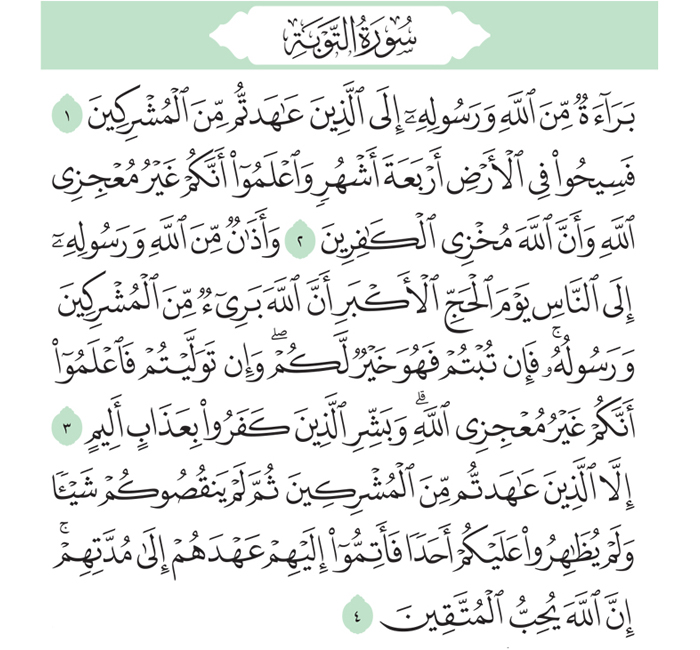 سُورَةُ التَّوۡبَةِ
بَرَآءَةٞ مِّنَ ٱللَّهِ وَرَسُولِهِۦٓ إِلَى ٱلَّذِينَ عَٰهَدتُّم مِّنَ ٱلۡمُشۡرِكِينَ ١
فَسِيحُواْ فِي ٱلۡأَرۡضِ أَرۡبَعَةَ أَشۡهُرٖ وَٱعۡلَمُوٓاْ أَنَّكُمۡ غَيۡرُ مُعۡجِزِي
ٱللَّهِ وَأَنَّ ٱللَّهَ مُخۡزِي ٱلۡكَٰفِرِينَ ٢ وَأَذَٰنٞ مِّنَ ٱللَّهِ وَرَسُولِهِۦٓ
إِلَى ٱلنَّاسِ يَوۡمَ ٱلۡحَجِّ ٱلۡأَكۡبَرِ أَنَّ ٱللَّهَ بَرِيٓءٞ مِّنَ ٱلۡمُشۡرِكِينَ
وَرَسُولُهُۥۚ فَإِن تُبۡتُمۡ فَهُوَ خَيۡرٞ لَّكُمۡۖ وَإِن تَوَلَّيۡتُمۡ فَٱعۡلَمُوٓاْ
أَنَّكُمۡ غَيۡرُ مُعۡجِزِي ٱللَّهِۗ وَبَشِّرِ ٱلَّذِينَ كَفَرُواْ بِعَذَابٍ أَلِيمٍ ٣
إِلَّا ٱلَّذِينَ عَٰهَدتُّم مِّنَ ٱلۡمُشۡرِكِينَ ثُمَّ لَمۡ يَنقُصُوكُمۡ شَيۡـٔٗا
وَلَمۡ يُظَٰهِرُواْ عَلَيۡكُمۡ أَحَدٗا فَأَتِمُّوٓاْ إِلَيۡهِمۡ عَهۡدَهُمۡ إِلَىٰ مُدَّتِهِمۡۚ
إِنَّ ٱللَّهَ يُحِبُّ ٱلۡمُتَّقِينَ ٤